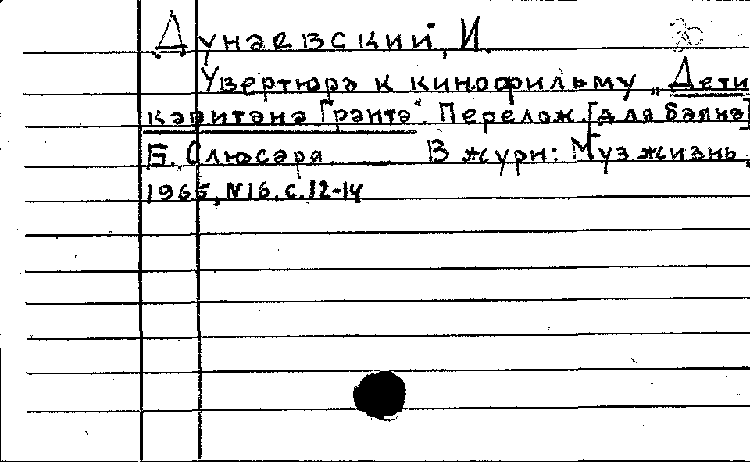 Дунаевский, И.
Увертюра к кинофильму „Дети
капитана Гранта“. Перелож. [для баяна]
Б. Слюсаря В журн: Муз жизнь,
1965, №16, с. 12-14